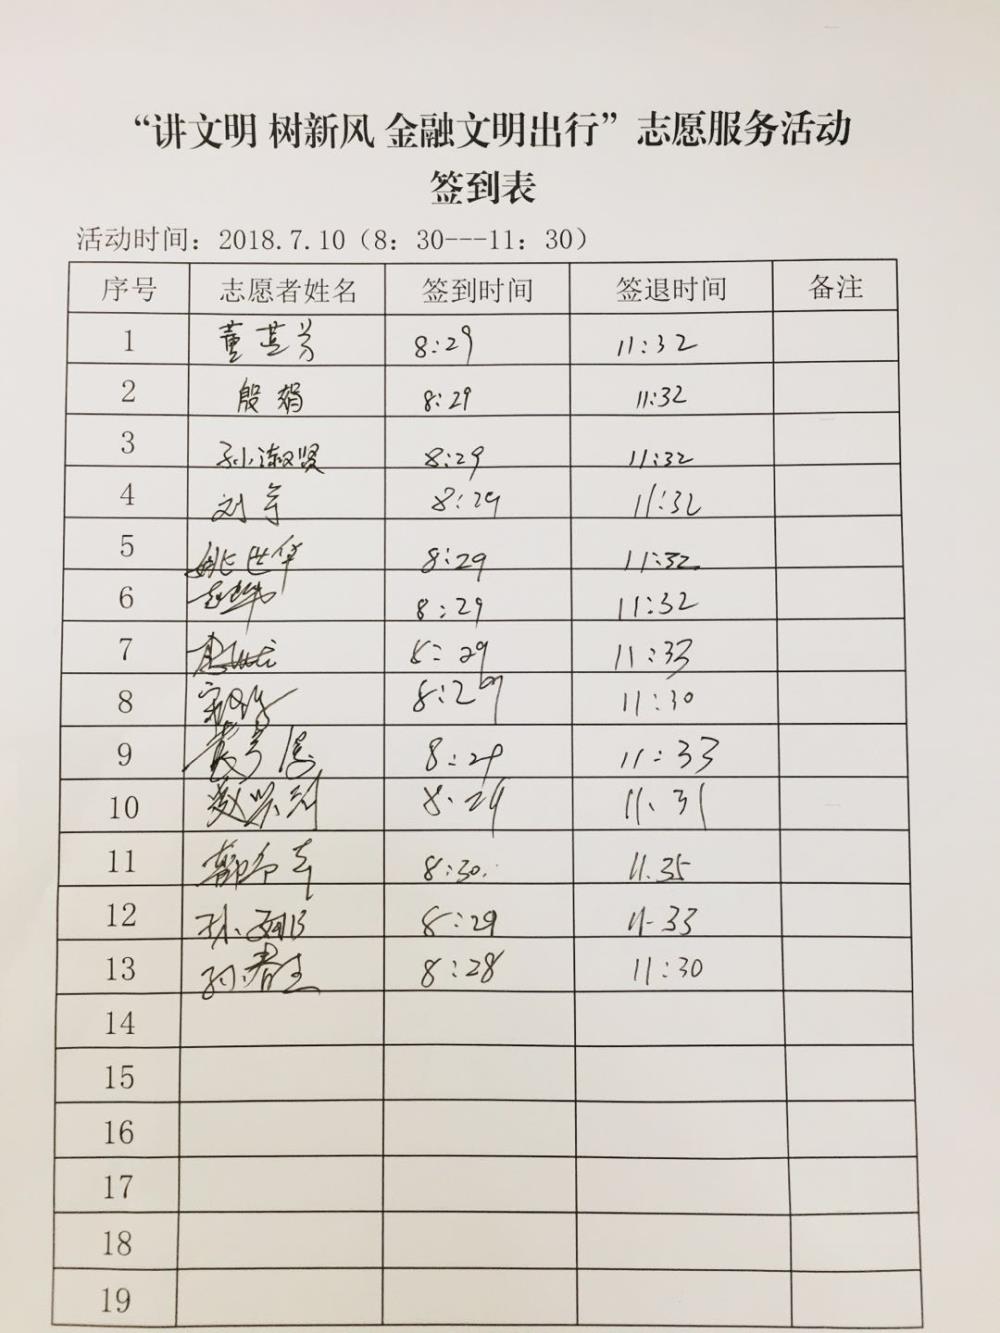 “讲文明 树新风 金融文明出行”志愿服务活动
签到表
活动时间：2018.7.10（8：30---11：30）
序号 志愿者姓名 签到时间 签退时间 备注
1 董芸芳 8:29 11:32
2 殷娟 8:29 11:32
3 孙淑贤 8:29 11:32
4 刘芳 8:29 11:32
5 姚世华 8:29 11:32
6 8:29 11:32
7 8:29 11:33
8 8:29 11:30
9 8:29 11:33
10 8:29 11.31
11 8:30. 11.35
12 孙娜 8:29 11-33
13 孙春生 8:28 11:30
14
15
16
17
18
19